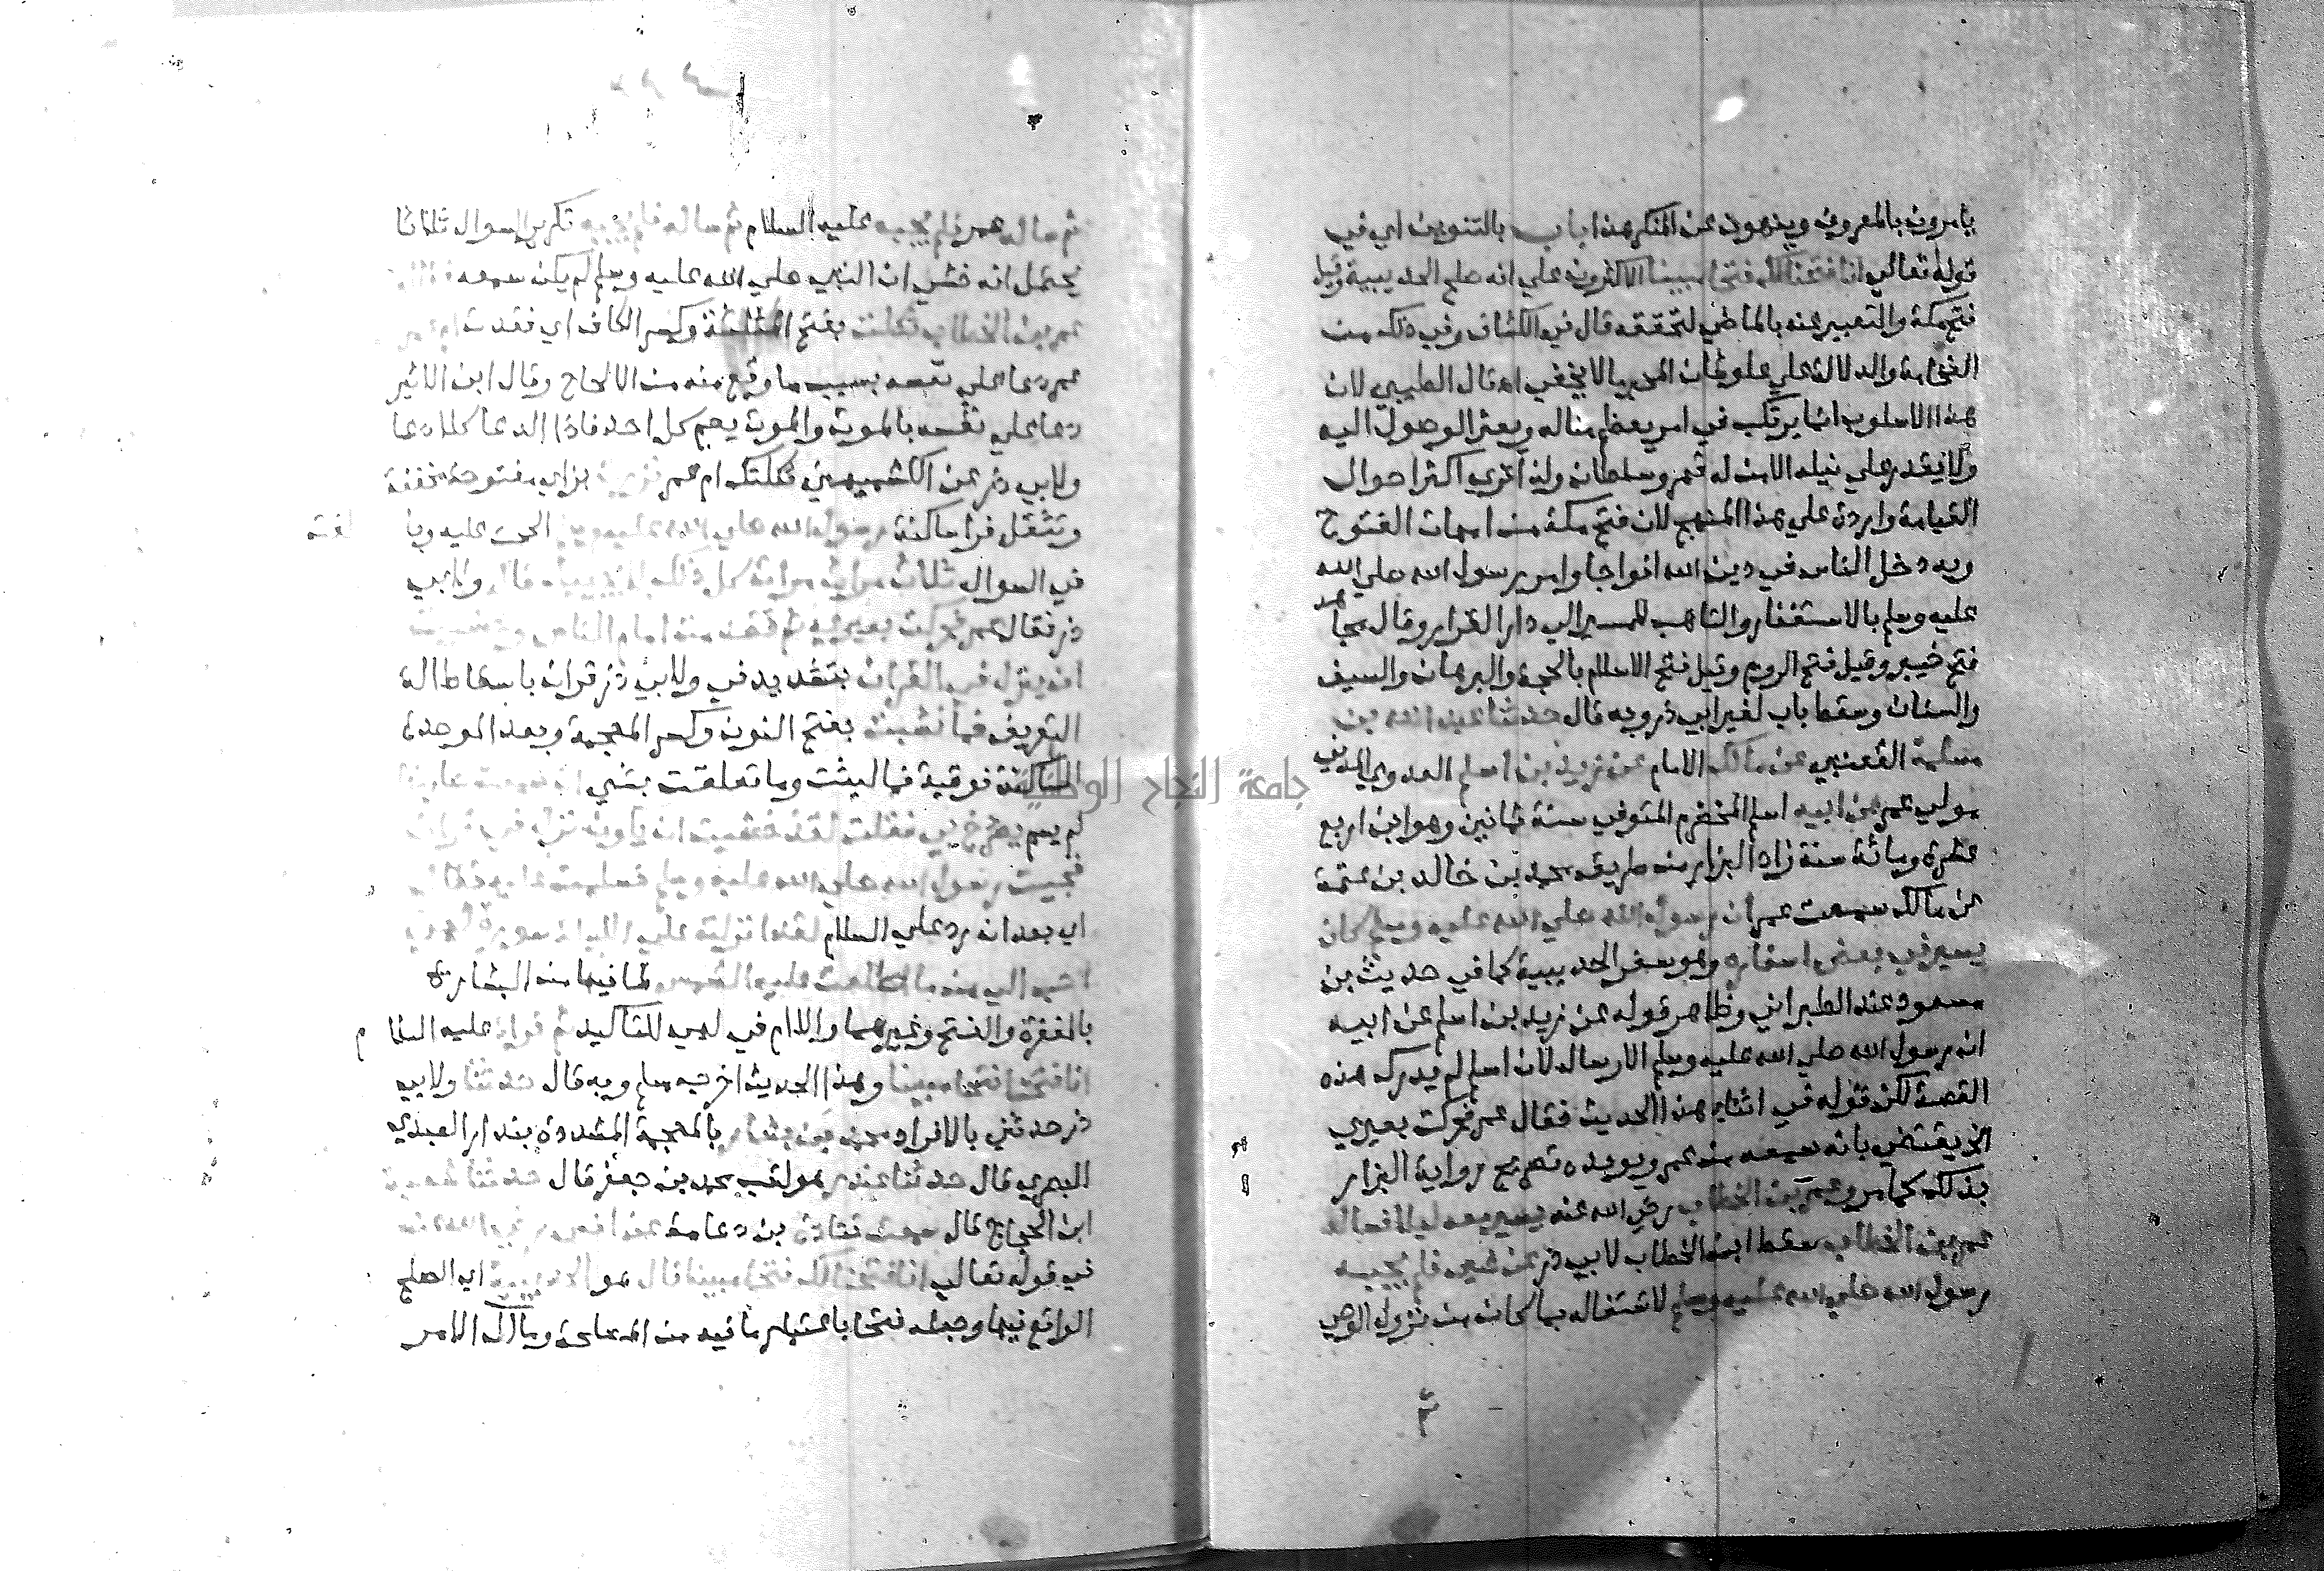 يامرون بالمعروف وينهون عن المنكر هذا باب بالتنوين اي في
قوله تعالي انا فتحنا لك فتحا مبينا الاكثرون علي انه صلح الحديبية وقيل
فتح مكة والتعبير عنه بالماضي لتحققه قال في الكشاف وفي ذلك من
الفخامة والدلالة علي علو شان المخبر ما لا يخفي اه قال الطيبي لان
هذا الاسلوب انما يرتكب في امر يعظم مناله ويعز الوصول اليه
ولا يقدر علي نيله الا من له قهر وسلطان ولذا تري اكثر احوال
القيامة واردة علي هذا المنهج لان فتح مكة من امهات الفتوح
وبه دخل الناس في دين الله افواجا وامر رسول الله صلي الله
عليه وسلم بالاستغفار والتاهب للمسير الي دار القرار وقال مجاهد
فتح خيبر وقيل فتح الروم وقيل فتح الاسلام بالحجة والبرهان والسيف
والسنان وسقط باب لغير ابي ذر وبه قال حدثنا عبد الله بن
مسلمة القعنبي عن مالك الامام عن زيد بن اسلم العدوي المدني
مولي عمر عن ابيه اسلم المخضرم المتوفي سنة ثمانين وهو ابن اربع
عشرة ومائة سنة زاد البزار من طريق محمد بن خالد بن عثمة
عن مالك سمعت عمر ان رسول الله صلي الله عليه وسلم كان
يسير في بعض اسفاره وهو سفر الحديبية كما في حديث بن
مسعود عند الطبراني وظاهر قوله عن زيد بن اسلم عن ابيه
ان رسول الله صلي الله عليه وسلم الارسال لان اسلم لم يدرك هذه
القصة لكن قوله في اثناء هذا الحديث فقال عمر فحركت بعيري
الخ يقتضي بانه سمعه من عمر ويويده تصريح رواية البزار
بذلك كما مر وعمر بن الخطاب رضي الله عنه يسير معه ليلا فساله
عمر بن الخطاب سقط ابن الخطاب لابي ذر عن شي فلم يجبه
رسول الله صلي الله عليه وسلم لاشتغاله بما كان من نزول الوحي
ثم ساله عمر فلم يجبه عليه السلام ثم ساله فلم يجبه تكرير السوال ثلاثا
يحتمل انه خشي ان النبي صلي الله عليه وسلم لم يكن سمعه
عمر بن الخطاب ثكلت بفتح المثلثة وكسر الكاف اي فقدت ام
عمر دعا علي نفسه بسبب ما وقع منه من الالحاح وقال ابن الاثير
دعا علي نفسه بالموت والموت يعم كل احد فاذا الدعا كلا دعا
ولابي ذر عن الكشميهني ثكلتك ام عمر نزرت بزاي مفتوحة مخففة
وتثقل فرا ساكنة رسول الله صلي الله عليه وسلم الححت عليه وبا لغت
في السوال ثلاث مرات كل ذلك لا يجيبك قال ولابي
ذر فقال عمر فحركت بعيري ثم تقدمت امام الناس وخشيت
ان ينزل في القران بتشديد في ولابي ذر قران باسقاط الة
التعريف فما نشبت بفتح النون وكسر المعجمة وبعد الموحدة
الساكنة فوقية فما لبثت وما تعلقت بشي ان سمعت صارخا
لم يسم يصرخ بي فقلت لقد خشيت ان يكون نزل في قران
فجيت رسول الله صلي الله عليه وسلم فسلمت عليه فقال
اي بعد ان رد علي السلام لقد انزلت علي الليلة سورة لهي
احب الي مما طلعت عليه الشمس لما فيها من البشارة
بالمغفرة والفتح وغيرهما واللام في لهي للتاكيد ثم قرا عليه السلام
انا فتحنا فتحا مبينا وهذا الحديث اخرجه مسلم وبه قال حدثنا ولابي
ذر حدثني بالافراد محمد بن بشار بالمعجمة المشددة بندار العبدي
البصري قال حدثنا غندر هو لقب محمد بن جعفر قال حدثنا شعبة
ابن الحجاج قال سمعت قتادة بن دعامة عن انس رضي الله عنه
في قوله تعالي انا فتحنا لك فتحا مبينا قال هو الحديبية اي الصلح
الواقع فيها وجعله فتحا باعتبار ما فيه من المصلحة ومال الامر
جامعة النجاح الوطنية